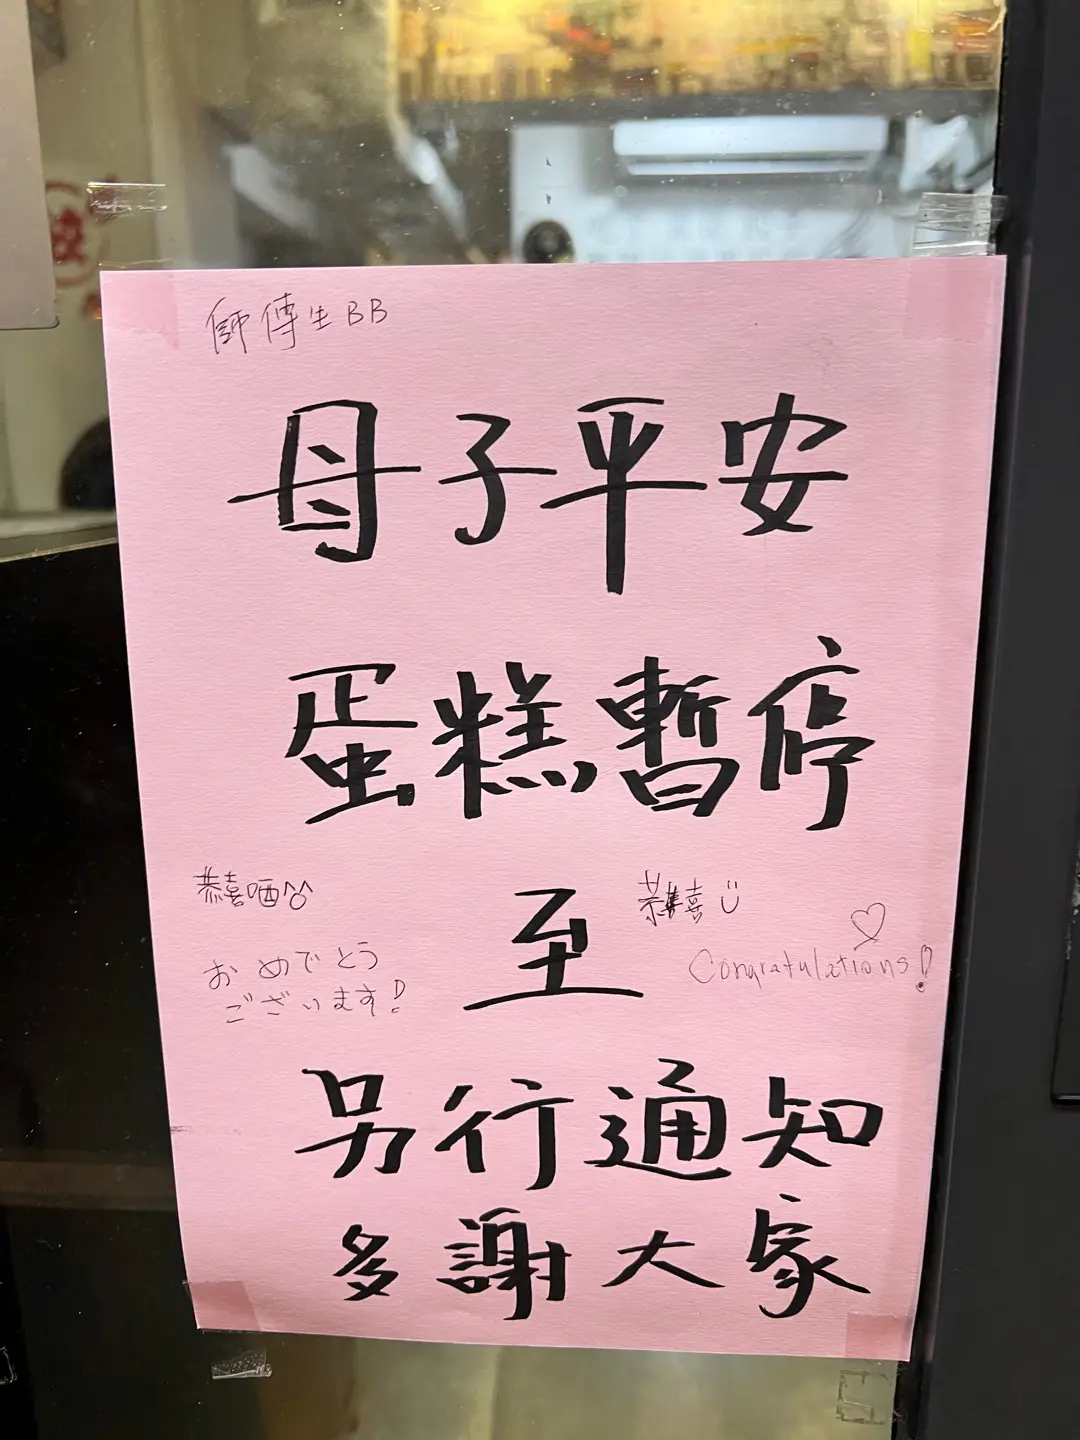 師傅生BB
母子平安
蛋糕暫停
恭喜哂^^
恭喜
至
おめでとう
ございます!
Congratulations!
另行通知
多謝大家